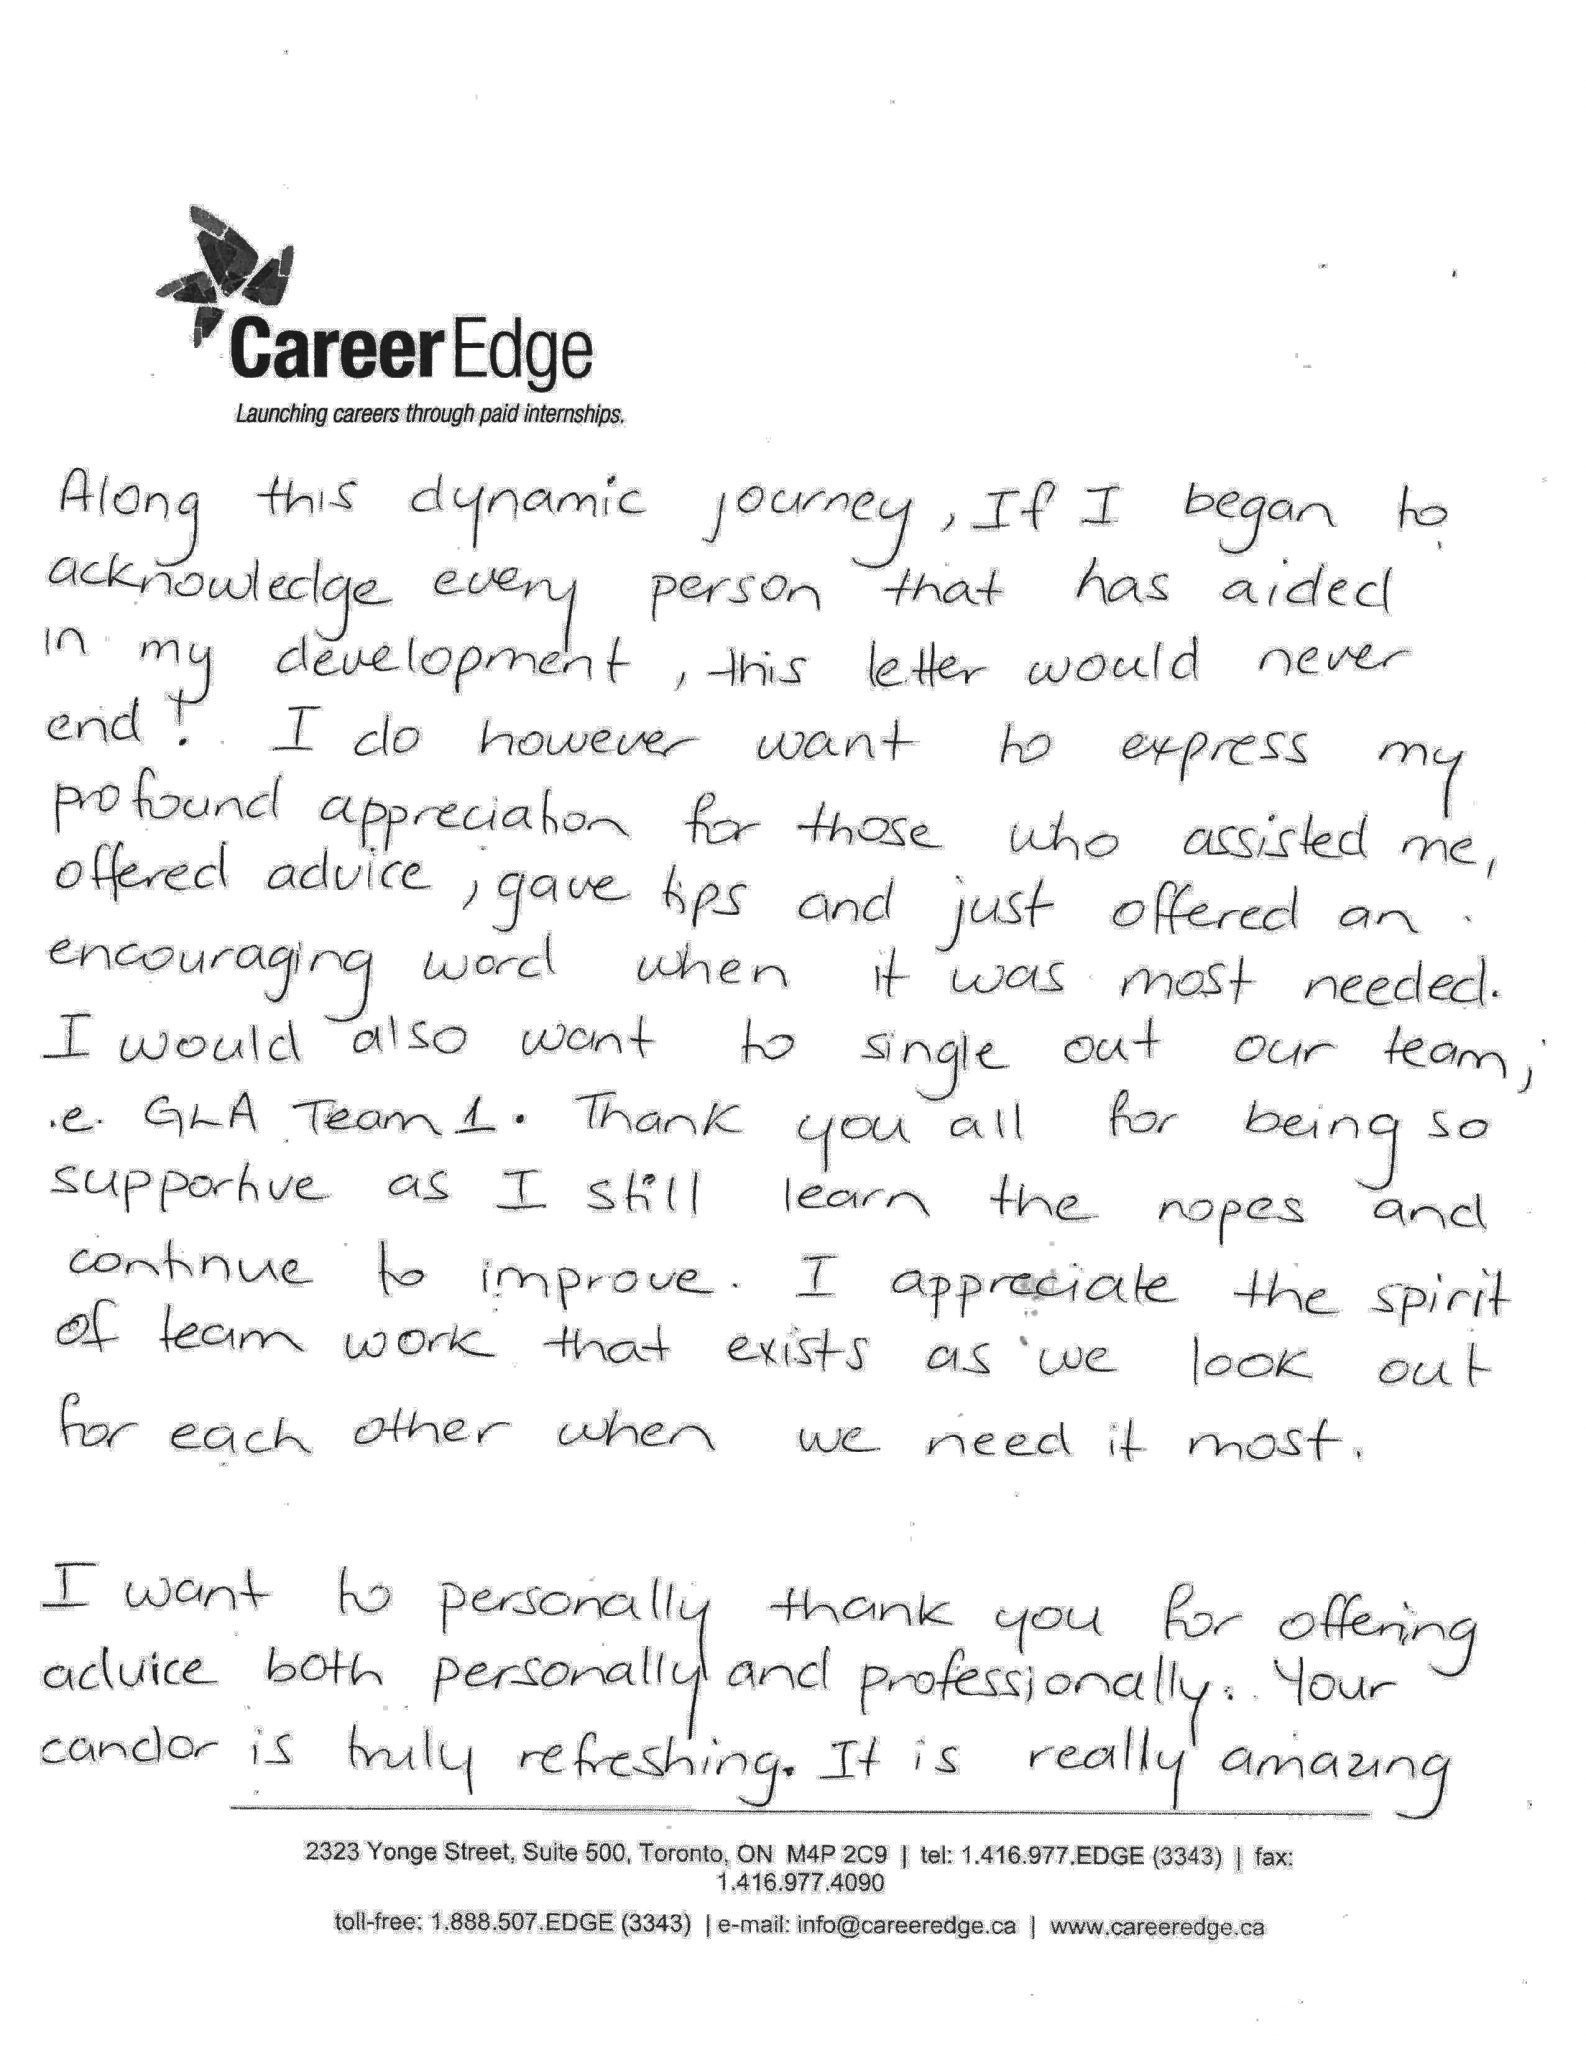 CareerEdge
Launching careers through paid internships.
Along this dynamic journey, If I began to
acknowledge every person that has aided
in my development, this letter would never
end! I do however want to express my
profound appreciation for those who assisted me,
offered advice, gave tips and just offered an
encouraging word when it was most needed.
I would also want to single out our team;
.e. GLA Team 1. Thank you all for being so
supportive as I still learn the ropes and
continue to improve. I appreciate the spirit
of team work that exists as we look out
for each other when we need it most.
I want to personally thank you for offering
advice both personally and professionally. Your
candor is truly refreshing. It is really amazing
2323 Yonge Street, Suite 500, Toronto, ON M4P 2C9 | tel: 1.416.977.EDGE (3343) | fax:
1.416.977.4090
toll-free: 1.888.507.EDGE (3343) | e-mail: info@careeredge.ca | www.careeredge.ca